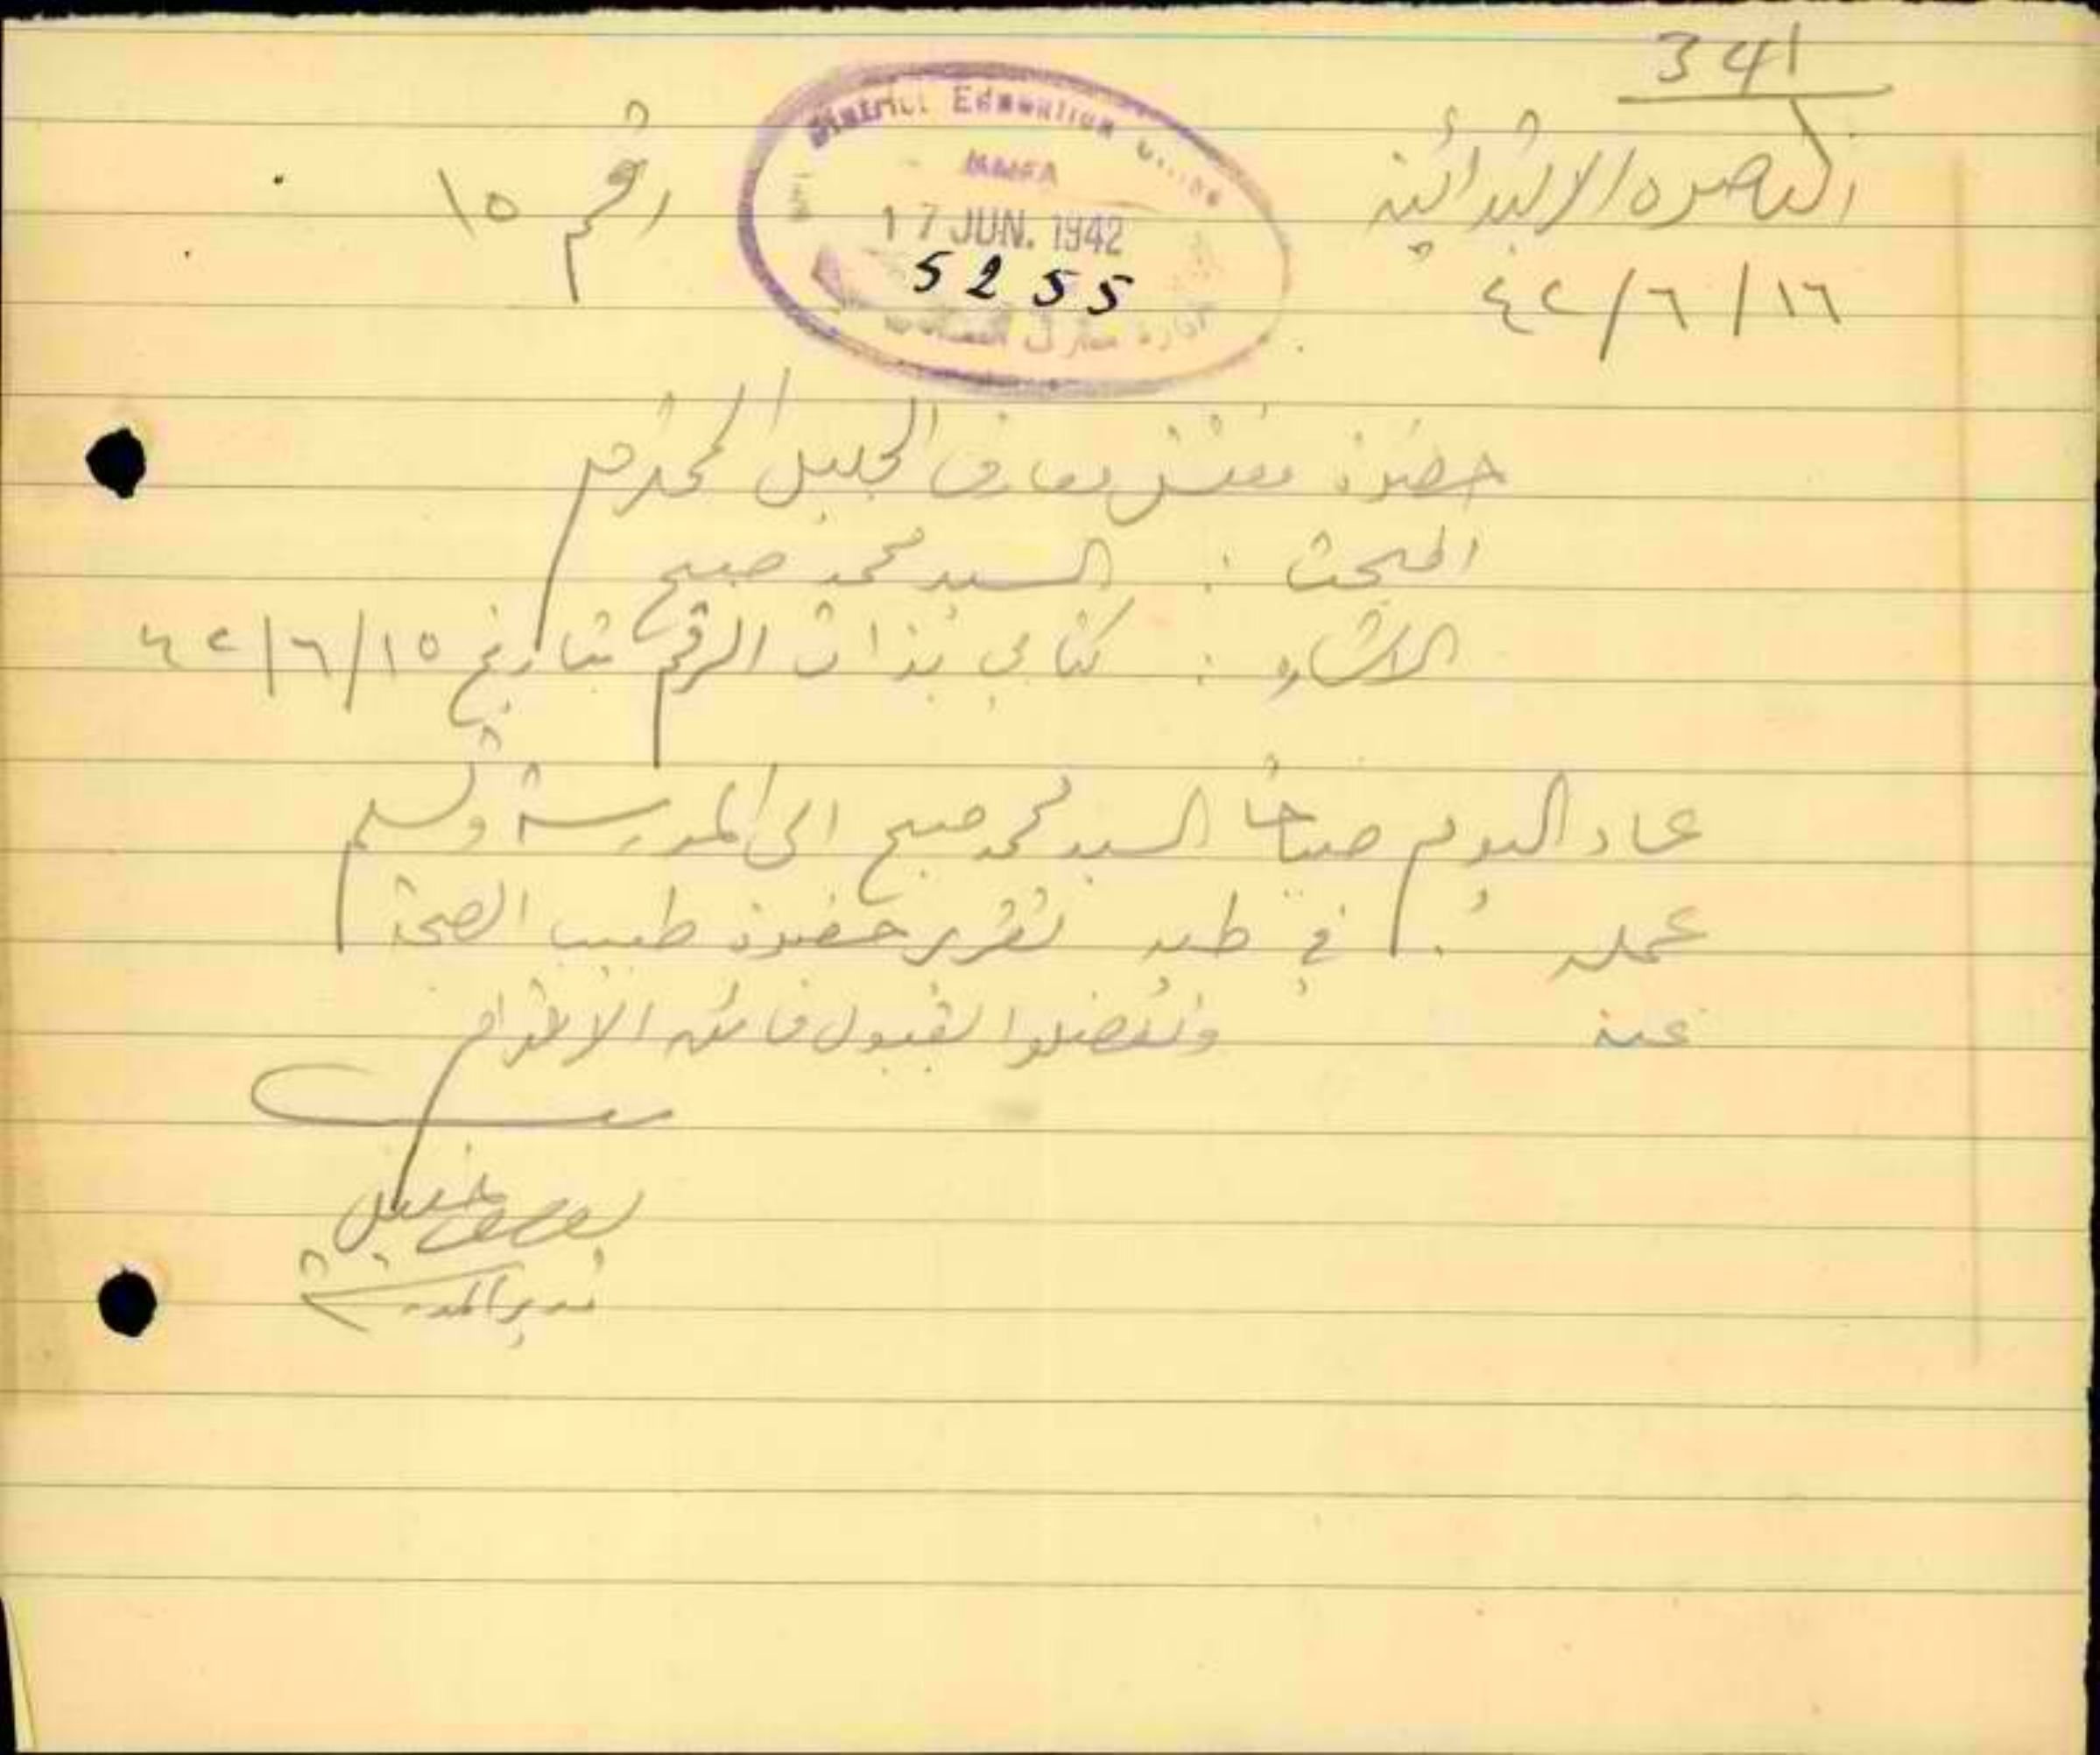 341
الناصره الابتدائية
District Education Office
HAIFA
17 JUN. 1942
5255
ادارة معارف
رقم ١٥
٤٢/٦/١٦
حضرة مفتش معارف الجليل المحترم
المبحث : السيد محمد صبيح
الاشاره : كتابي بذات الرقم بتاريخ ٤٢/٦/١٥
عاد اليوم صباحاً السيد محمد صبيح الى المدرسة وتسلم
عمله . في طيه تقرير حضرة طبيب الصحة
عنه وتفضلوا بقبول فائق الاحترام
خليل
مدير المدرسة